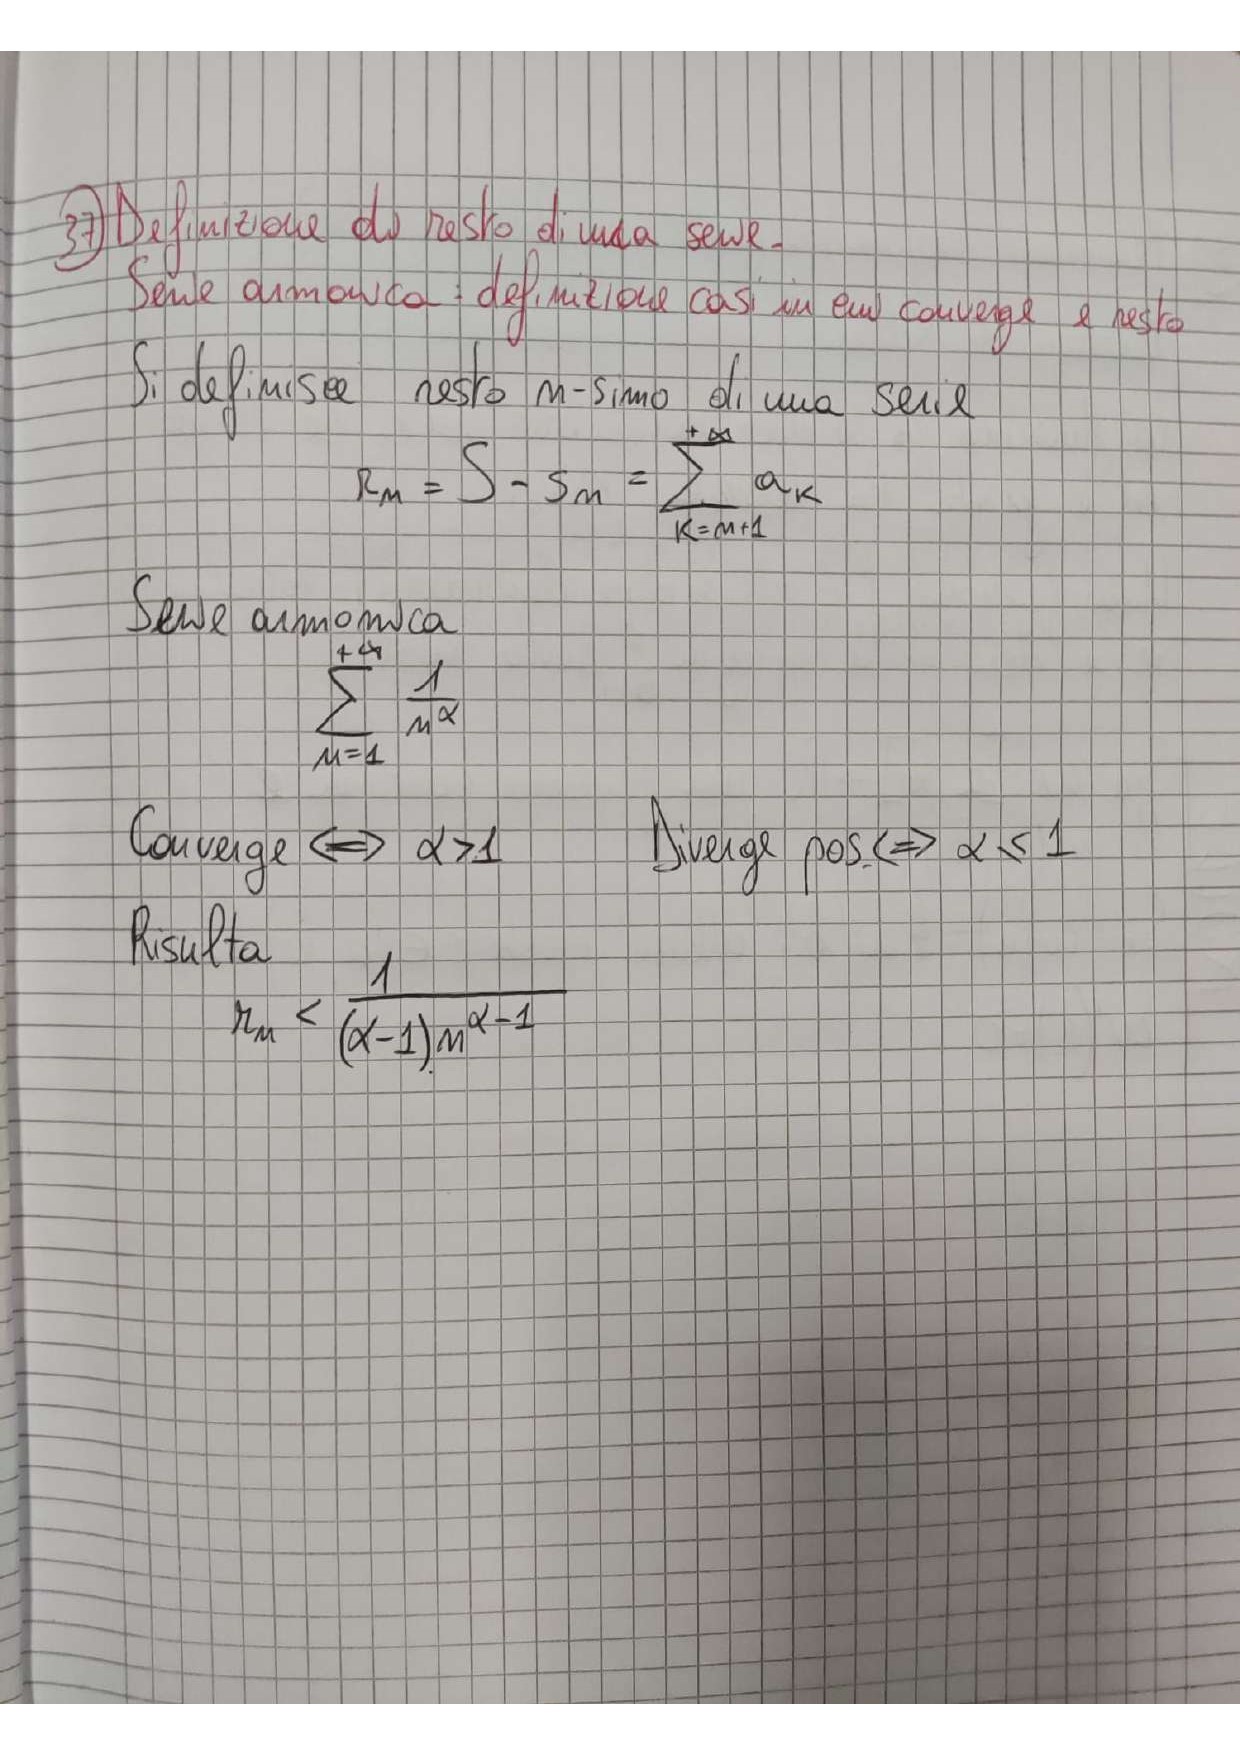 37) Definizione di resto di una serie.
Serie armonica: definizione casi in cui converge e resto
Si definisce resto n-simo di una serie
Rn = S - sn = +∞ ∑ k=n+1 ak
Serie armonica
+∞ ∑ n=1 1/n^α
Converge <=> α>1 Diverge pos. <=> α ≤ 1
Risulta
rn < 1/((α-1)n^(α-1))